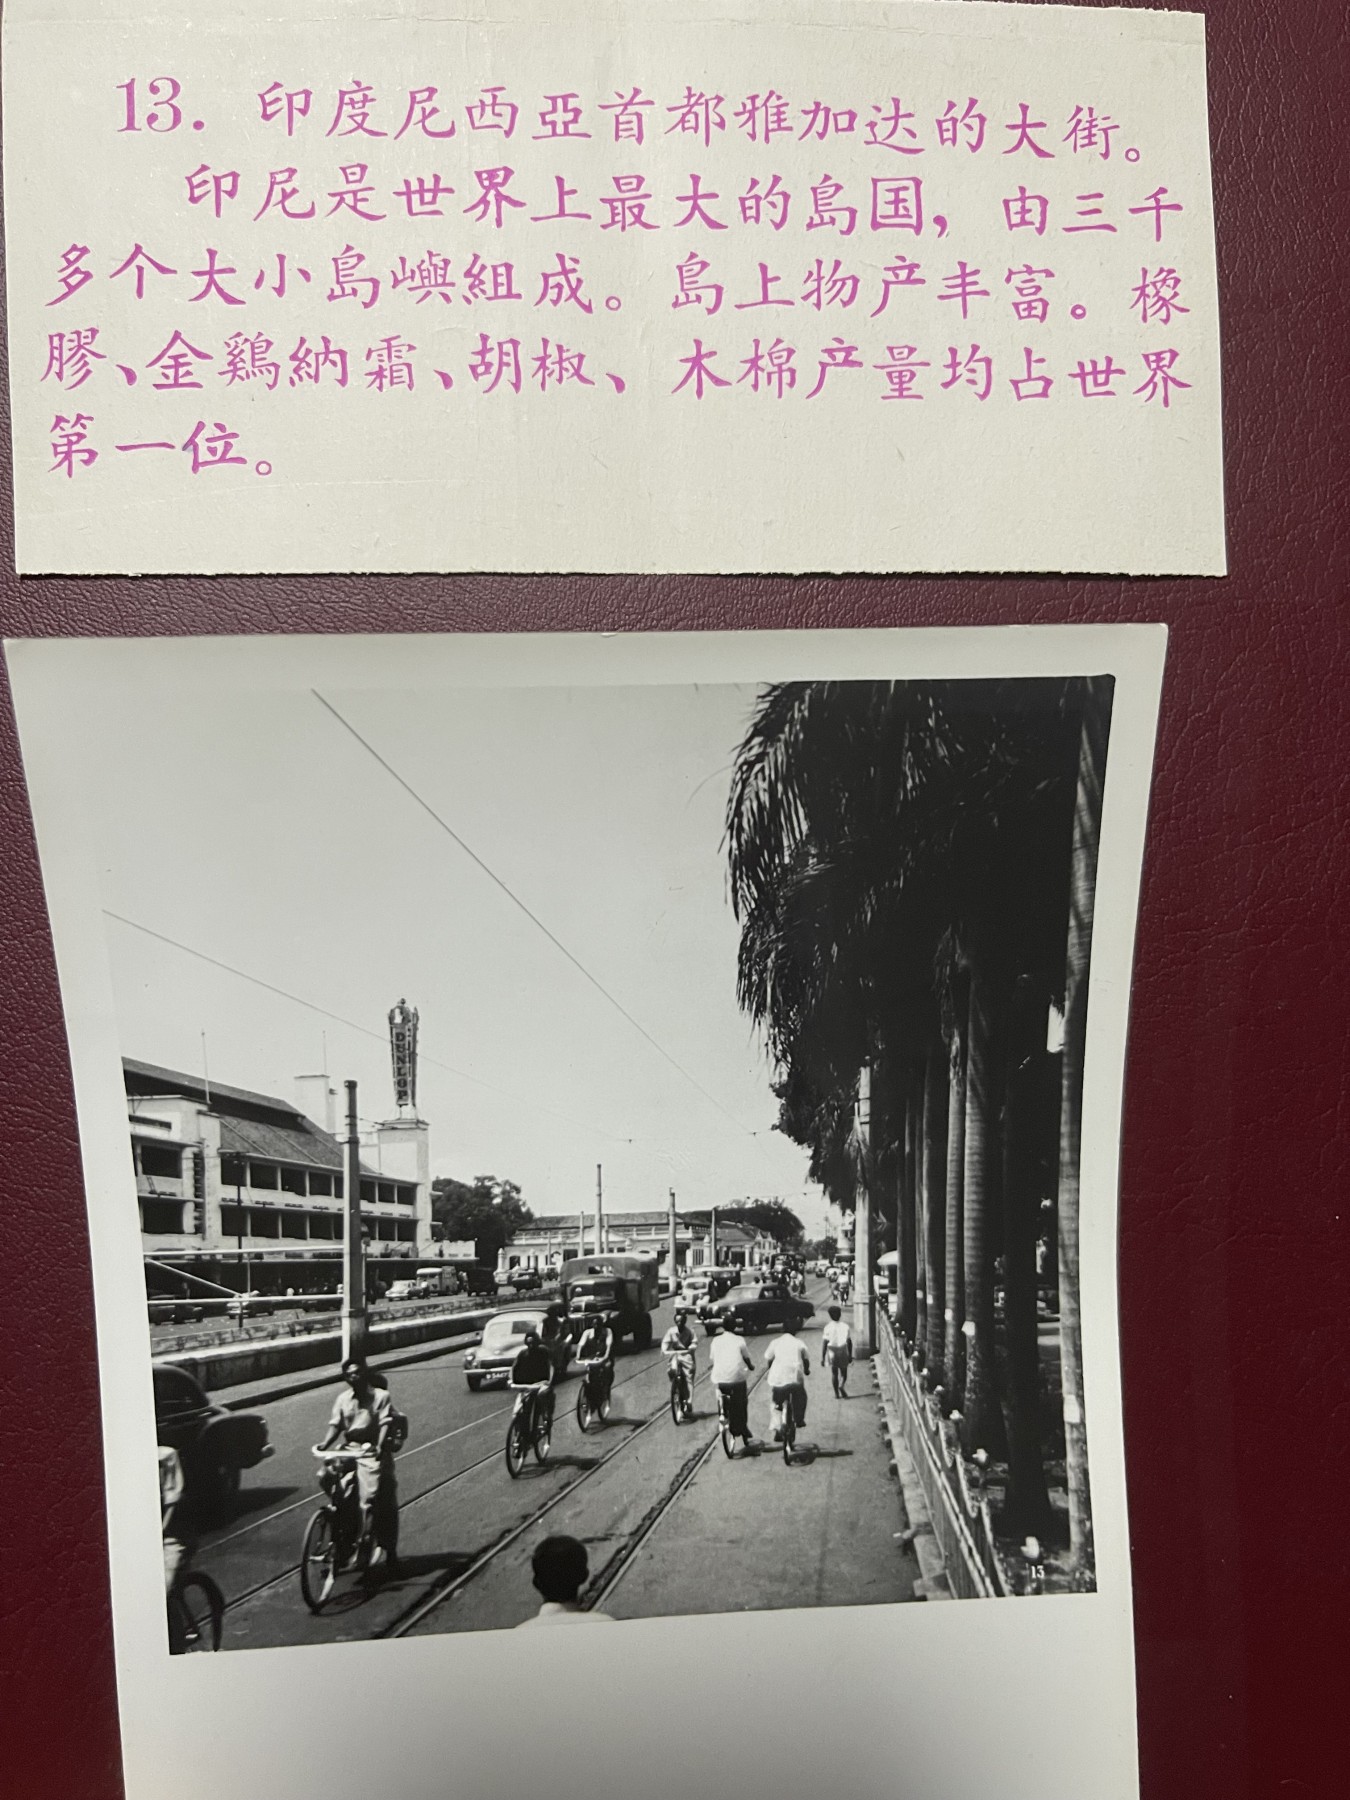 13. 印度尼西亞首都雅加达的大街。
印尼是世界上最大的島国，由三千
多个大小島嶼組成。島上物产丰富。橡
膠、金鷄納霜、胡椒、木棉产量均占世界
第一位。
DUNLOP
13